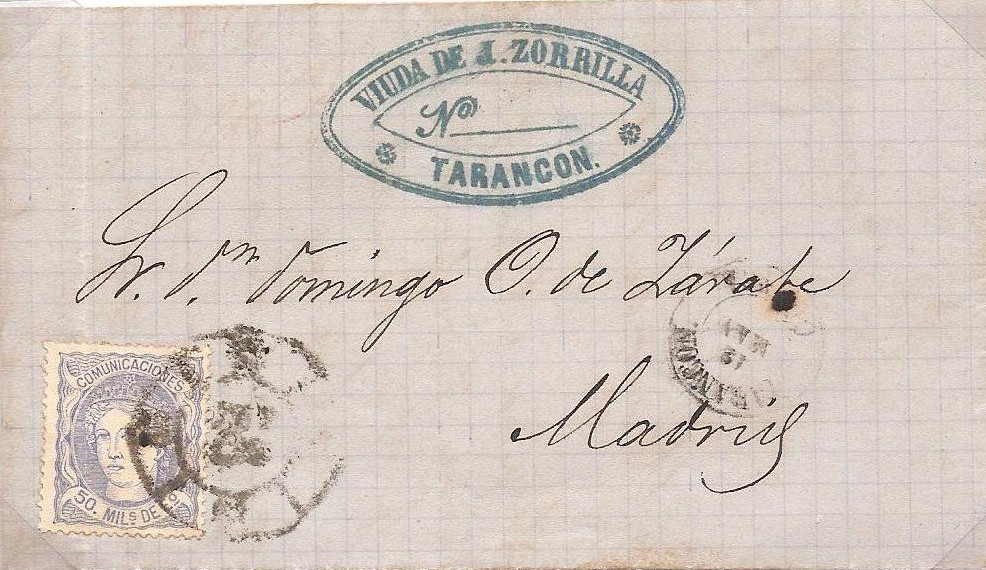 VIUDA DE J. ZORRILLA
Nº
TARANCON.
Sr. Dn. Domingo O. de Zárate
Madrid
COMUNICACIONES
50. MILS DE Eº
TARANCON
12